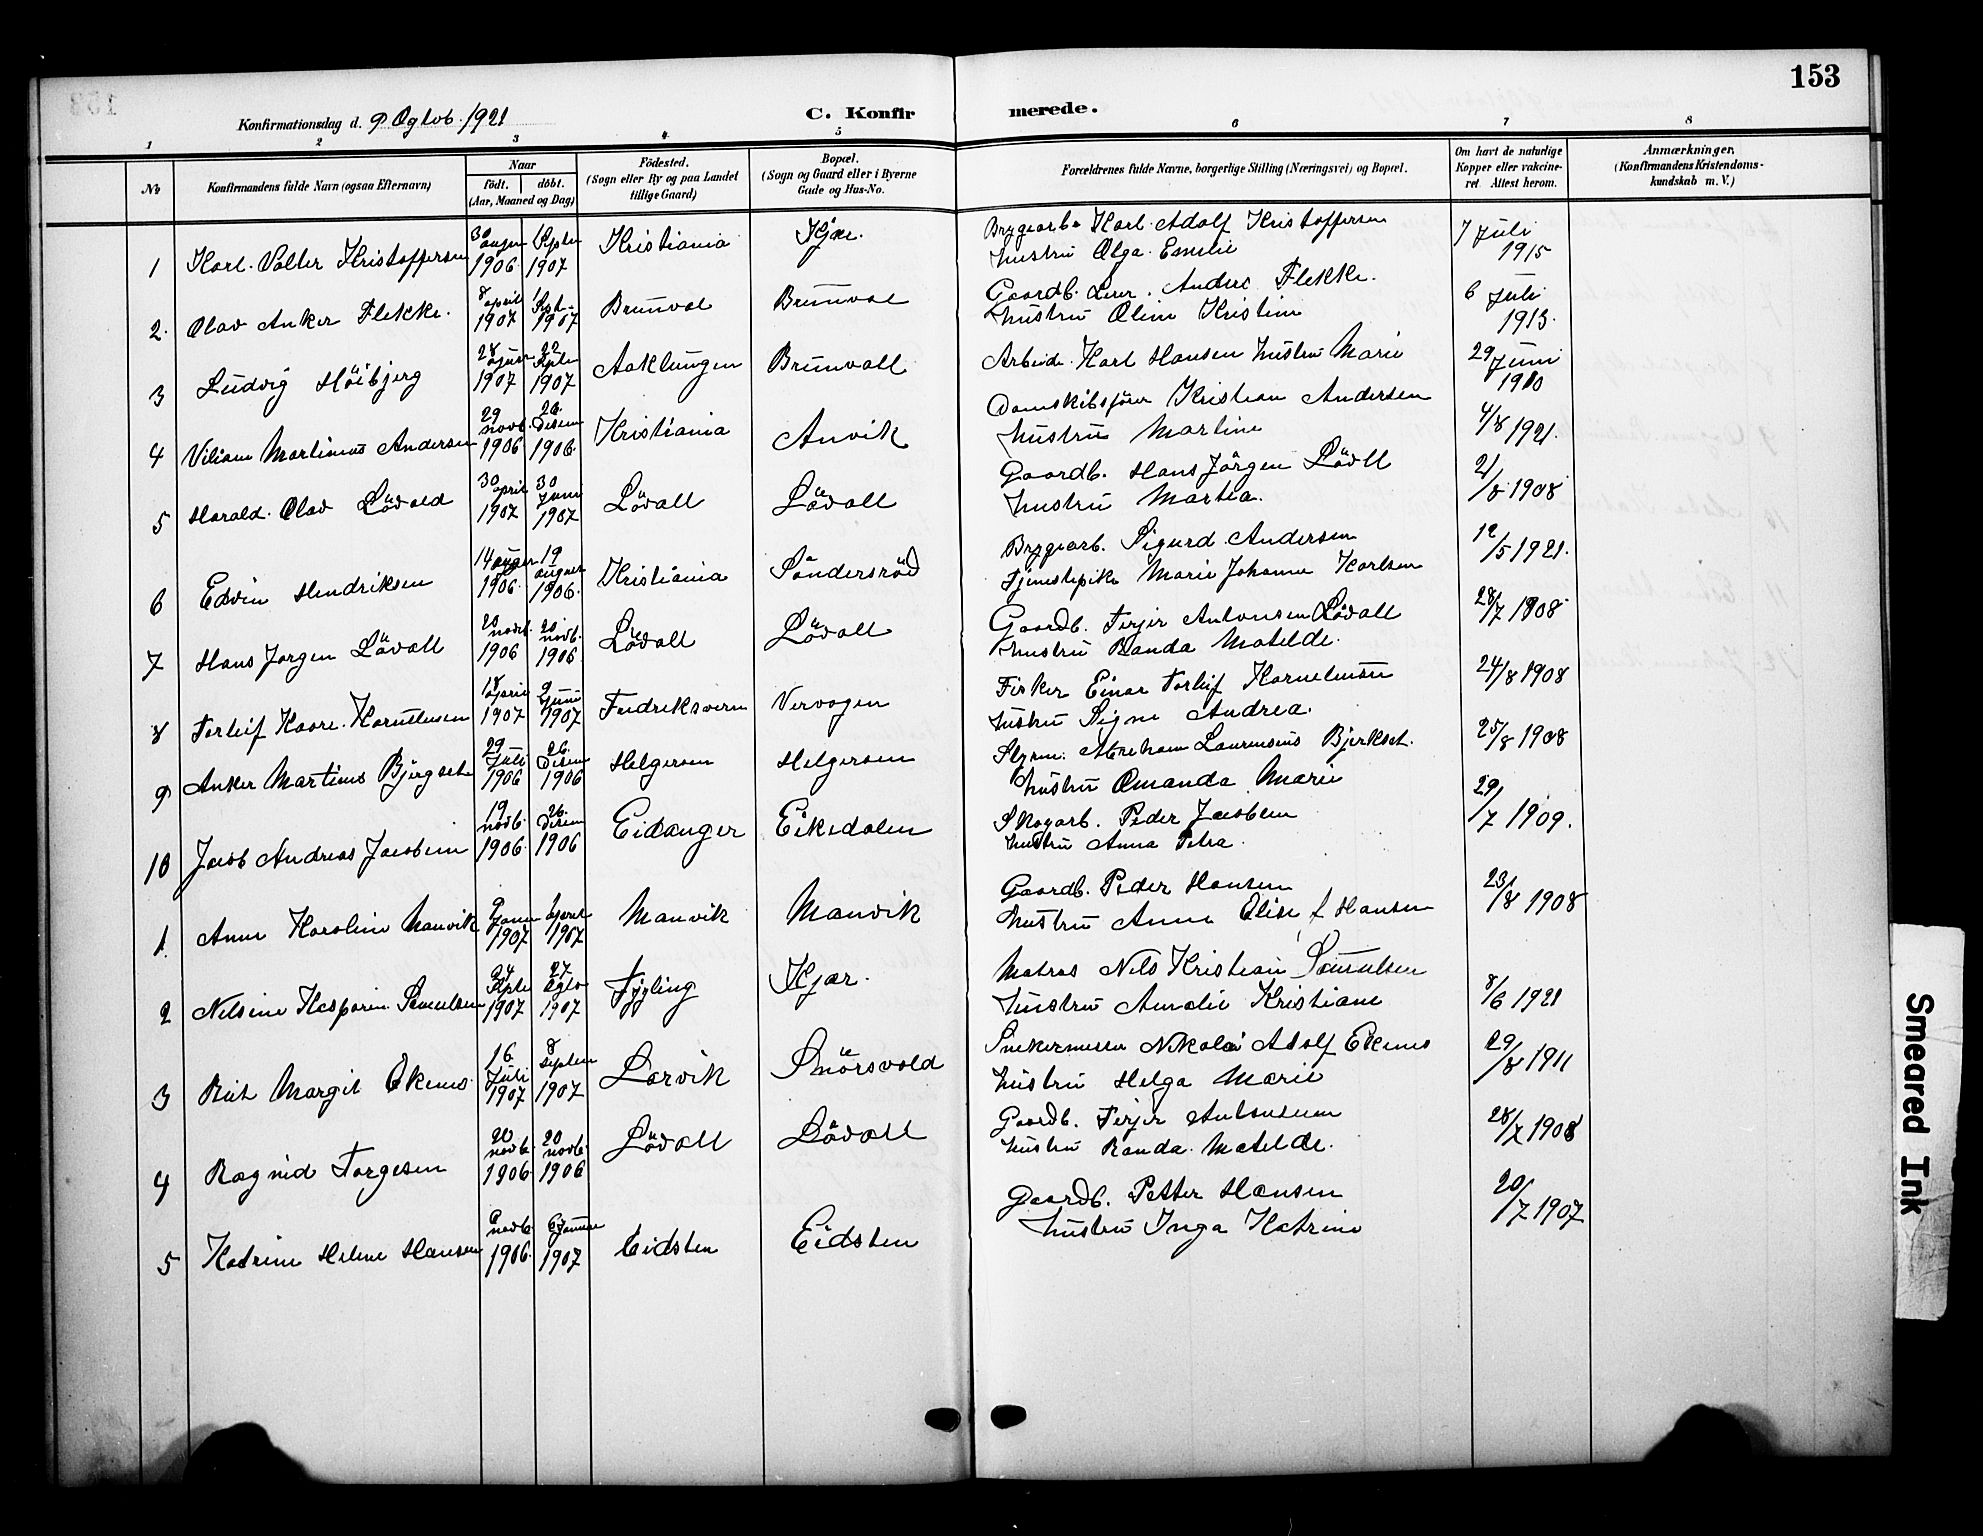 153
Konfirmationsdag d. 9 Ogtob. 1921
C. Konfirmerede.
1 2 3 4 5 6 7 8
No
Konfirmandens fulde Navn (ogsaa Efternavn)
Naar
födt. döbt.
(Aar, Maaned og Dag)
Födested.
(Sogn eller By og paa Landet
tillige Gaard)
Bopæl.
(Sogn og Gaard eller i Byerne
Gade og Hus-No.
Forældrenes fulde Navne, borgerlige Stilling (Næringsvei) og Bopæl.
Om havt de naturlige
Kopper eller vakcine-
ret. Attest herom.
Anmærkninger.
(Konfirmandens Kristendoms-
kundskab m. V.)
1 Karl Valter Kristoffersen 30 1906 1 1907 Kristiania Kjær.
Brygearb. Karl Adolf Kristoffersen 7 Juli
hustru Olga Emelie 1915
2. Olav Anker Flekke. 8 april 1907 1907 Brunval Brunval
Gaardb. Anders Flekke. 6 Juli
hustru Oline Kristine 1913.
3 Ludvig Höibjerg 28 1907 22 1907 Aaklungen Brunvall
Arbeide. Karl Hansen hustru Marie 29 Juni 1910
4 Viliam Martinius Andersen 29 novb. 1906 26 Desem 1906. Kristiania Anvik
Damskibsförer Kristian Andersen
hustru Martine 4/8 1921.
5 Harald Olav Lövald 30 april 1907 30 Juni 1907 Lövall Lövall
Gaardb. Hans Jörgen Lövll
hustru Martea. 21/8 1908
6 Edvin Hendriksen 14 1906 19 1906. Kristiania Söndersröd
Brygearb. Sigurd Andersen 12/5 1921.
Tjenestepike Marie Johanne Karlsen
7 Hans Jörgen Lövall 20 novb. 1906 20 novb. 1906. Lövall Lövall
Gaardb. Terjer Antonsen Lövall 28/7 1908
hustru Randa Matelde.
8 Torleif Kaare Kornelusen 18 april 1907 9 Juni 1907 Fredriksvern Nervogen
Fisker Einar Torleif Kornelusen 24/8 1908
hustru Signe Andrea.
9 Anker Martinus Björgset 29 Juli 1906 26 Desem 1906 Helgeroen Helgeroen
Styrm. Abraham Laurensius Bjerkset. 25/8 1908
hustru Amanda Marie
10 Jacob Andreas Jacobsen 19 novb. 1906. 26 Desem 1906 Eidanger Eikedalen
Skogarb. Peder Jacobsen 29/7 1909.
hustru Anna Petra.
1. Anne Karoline Manvik 9 1907 1907 Manvik Manvik
Gaardb. Peder Hansen
hustru Anne Elise f Hansen 23/8 1908
2 Nilsine Kasparine Samuelsen 24 1907 27 1907 Tjöling Kjær.
Matros Nils Kristian Samuelsen
hustru Amalie Kristiane 8/6 1921
3 Rut Margit Ekenes 16 Juli 1907 8 Septem 1907 Larvik Snörsvold
Snekermester Nikolai Adolf Ekenes
hustru Helga Marie 29/8 1911
4 Ragnid Torgesen 20 novb. 1906 20 novb. 1906 Lövall Lövall
Gaardb. Terjer Antonsen
hustru Randa Matelde. 28/7 1908
5 Katrine Helene Hansen novb 1906. 6 Januar 1907 Eidsten Eidsten
Gaardb. Petter Hansen
hustru Inga Katrine 20/7 1907
Smeared Ink